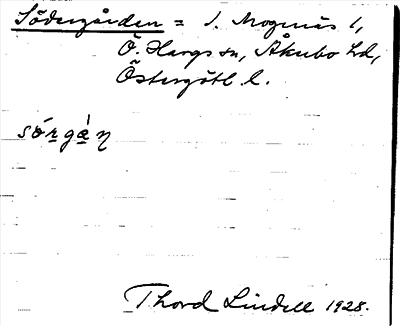 Södergården = S. Mogmäs 1,
Ö. Hargs sn, Åkerbo hd,
Östergötl. l.
sórgàn
Thord Lindell 1928.